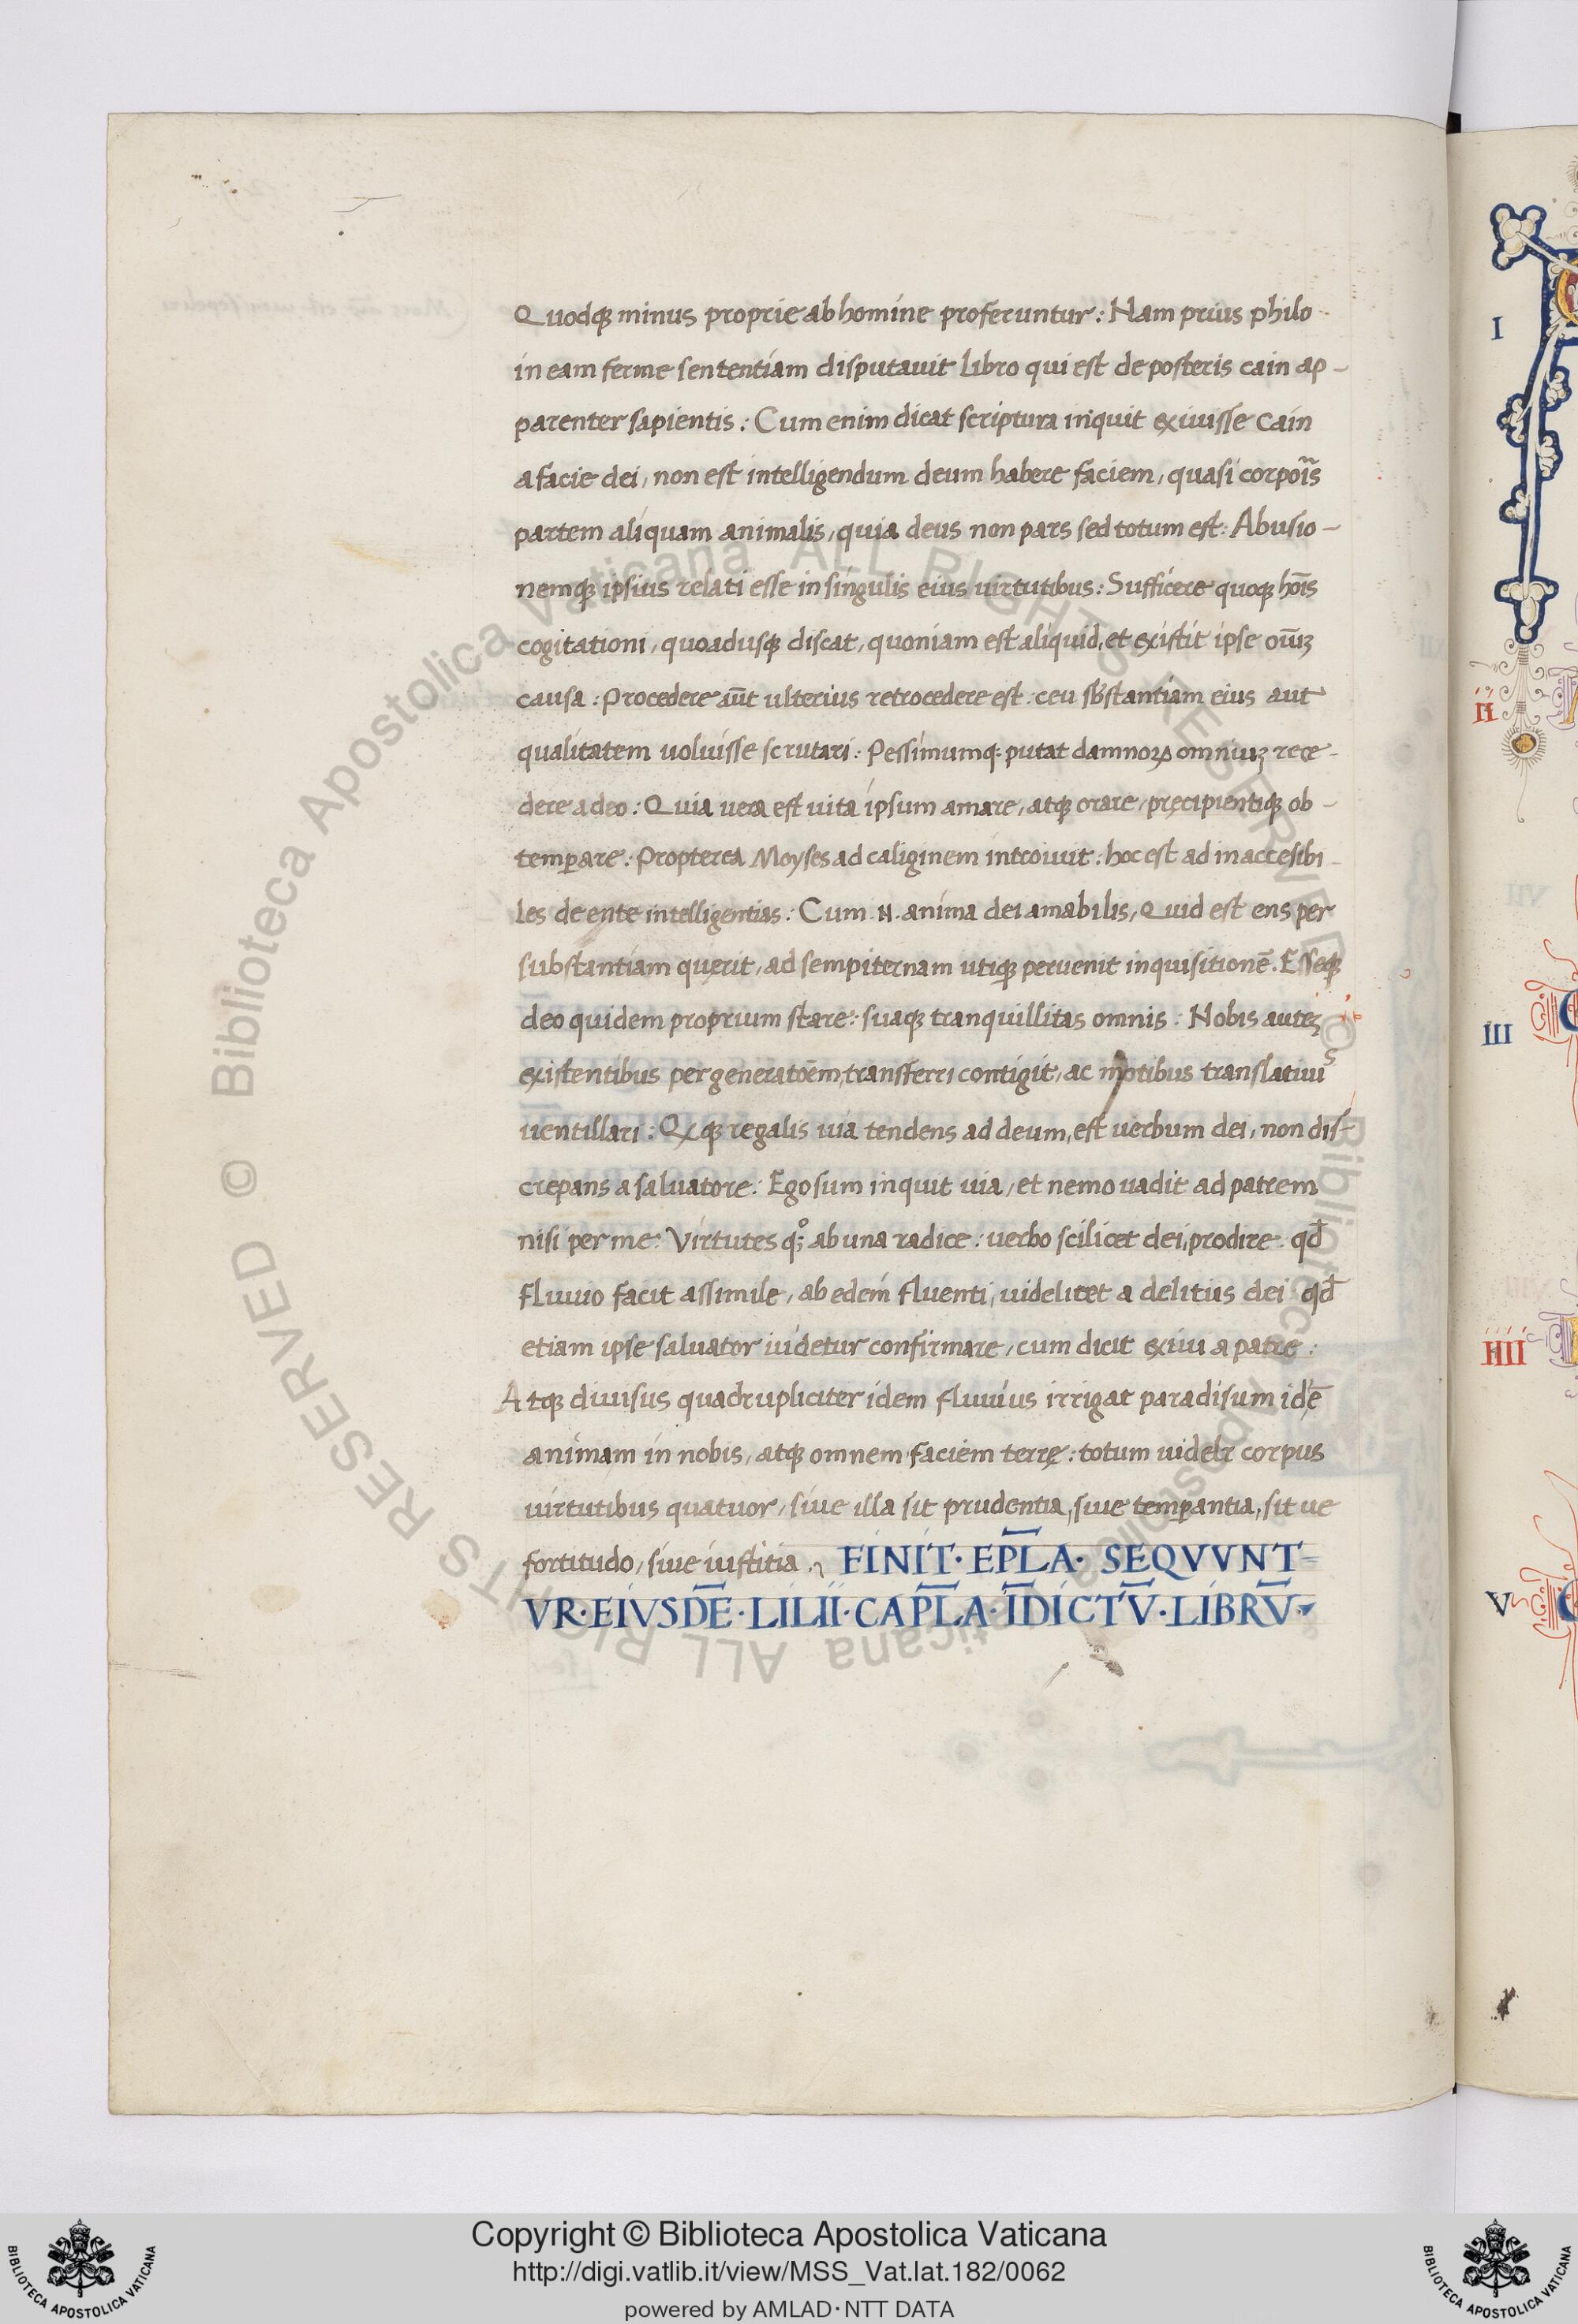 Quodq; minus proprie ab homine proferuntur: Nam prius philo
in eam ferme sententiam disputauit libro qui est de posteris cain ap-
parenter sapientis: Cum enim dicat scriptura inquit exiuisse Cain
a facie dei, non est intelligendum deum habere faciem, quasi corpoĩs
partem aliquam animalis, quia deus non pars sed totum est: Abusio-
nemq; ipsius relati esse in singulis eius uirtutibus: Sufficere quoq; hoīs
cogitationi, quoadusq; discat, quoniam est aliquid, et existit ipse oīuʒ
causa: Procedere aūt ulterius retrocedere est: ceu sb̄stantiam eius aut
qualitatem uoluisse scrutari: Pessimumq; putat damnoꝝ omniuʒ rece-
dere a deo: Quia uera est uita ipsum amare, atq; orare, pręcipientiq; ob-
temꝑare: Propterea Moyses ad caliginem introiuit: hoc est ad inaccesibi-
les de ente intelligentias: Cum .N. anima dei amabilis, Quid est ens per
substantiam quęrit, ad sempiternam utiq; peruenit inquisitionē. Esseq;
deo quidem proprium stare: suaq; tranquillitas omnis: Nobis auteʒ
existentibus per generatōem, transferri contigit, ac motibus translatiuis
uentillari: Qq; regalis uia tendens ad deum, est uerbum dei, non dis-
crepans a saluatore: Ego sum inquit uia, et nemo uadit ad patrem
nisi per me: Virtutes qº; ab una radice: uerbo scilicet dei, prodire. qđ
fluuio facit assimile, ab edem fluenti, uidelicet a delitiis dei qđ
etiam ipse saluator uidetur confirmare, cum dicit exiui a patre:
Atq; diuisus quadrupliciter idem fluuius irrigat paradisum idē
animam in nobis, atq; omnem faciem terrę: totum uidelꝫ corpus
uirtutibus quatuor, siue illa sit prudentia, siue temꝑantia, sit ue
fortitudo, siue iustitia. FINIT· EPL̄A· SEQVVNT=
VR·EIVSDĒ·LILII·CAPL̄A·ĪDICTV̄·LIBRV̄·
I
II
III
IIII
V
Biblioteca Apostolica Vaticana ALL RIGHTS RESERVED ©
Copyright © Biblioteca Apostolica Vaticana
http://digi.vatlib.it/view/MSS_Vat.lat.182/0062
powered by AMLAD·NTT DATA
BIBLIOTECA APOSTOLICA VATICANA
BIBLIOTECA APOSTOLICA VATICANA